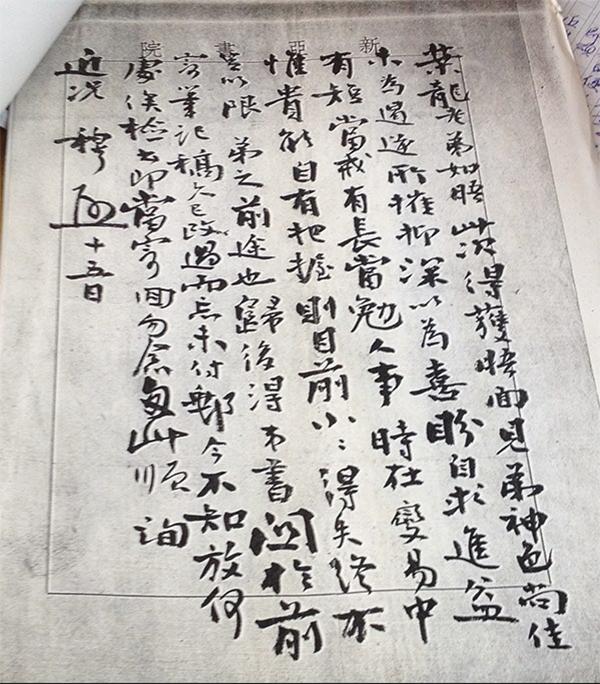 新亞書院
葉龍老弟如晤此次得獲晤面見弟神色尚佳
不為所摧抑深以為喜盼自求進益
有短當戒有長當勉人事時在變易中
惟貴能自有把握則目前小小得失終不
足以限弟之前途也歸後得來書關於前
寄筆記稿久已改過而忘未付郵今不知放何
處俟檢出即當寄回勿念匆此順詢
近況 穆啟 十五日